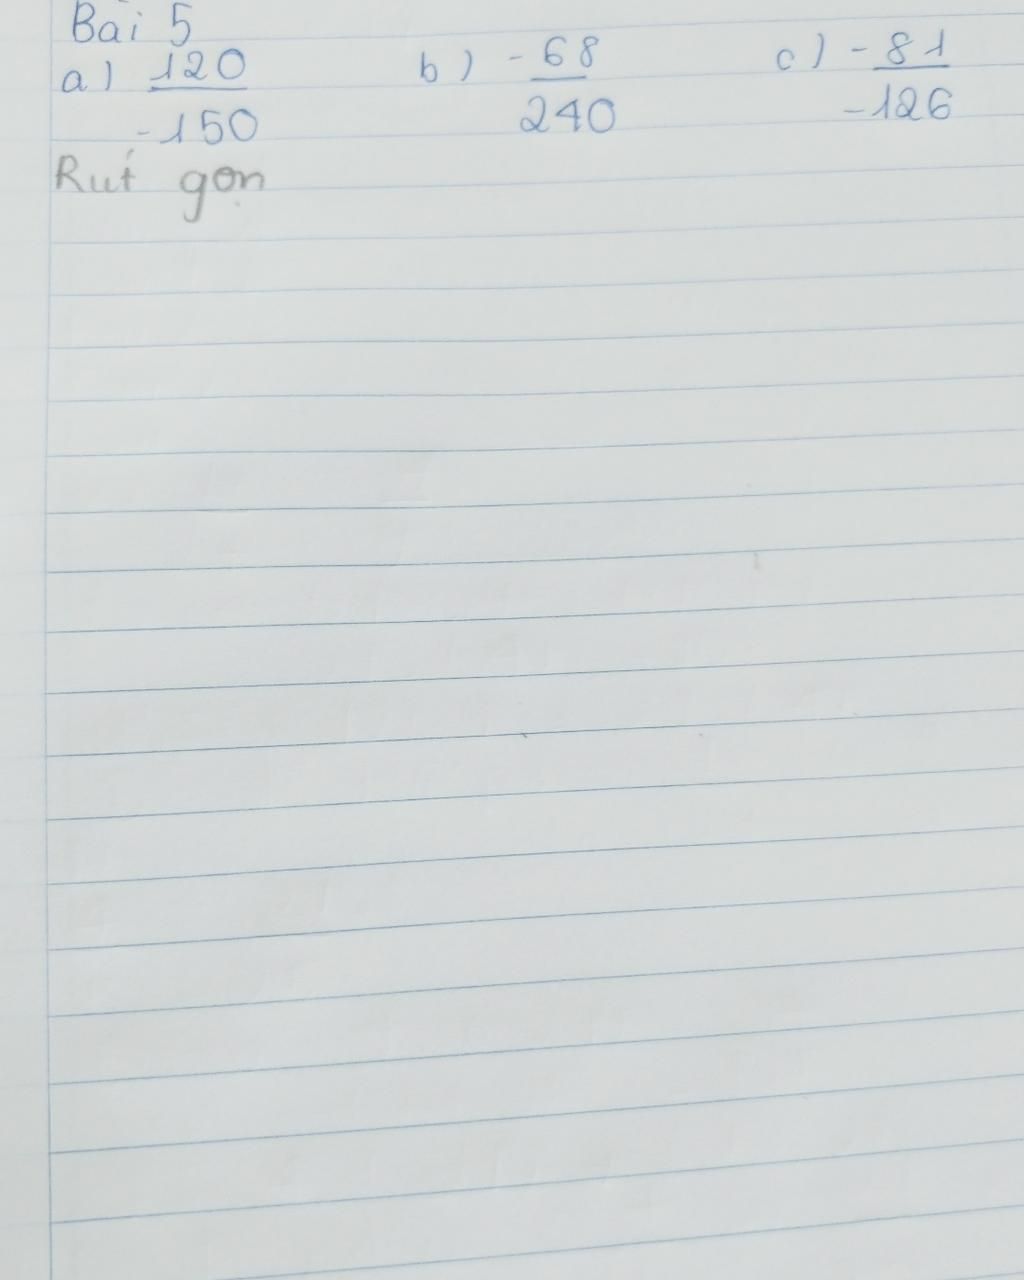 Bài 5
a) 120/-150 b) -68/240 c) -81/-126
Rút gọn